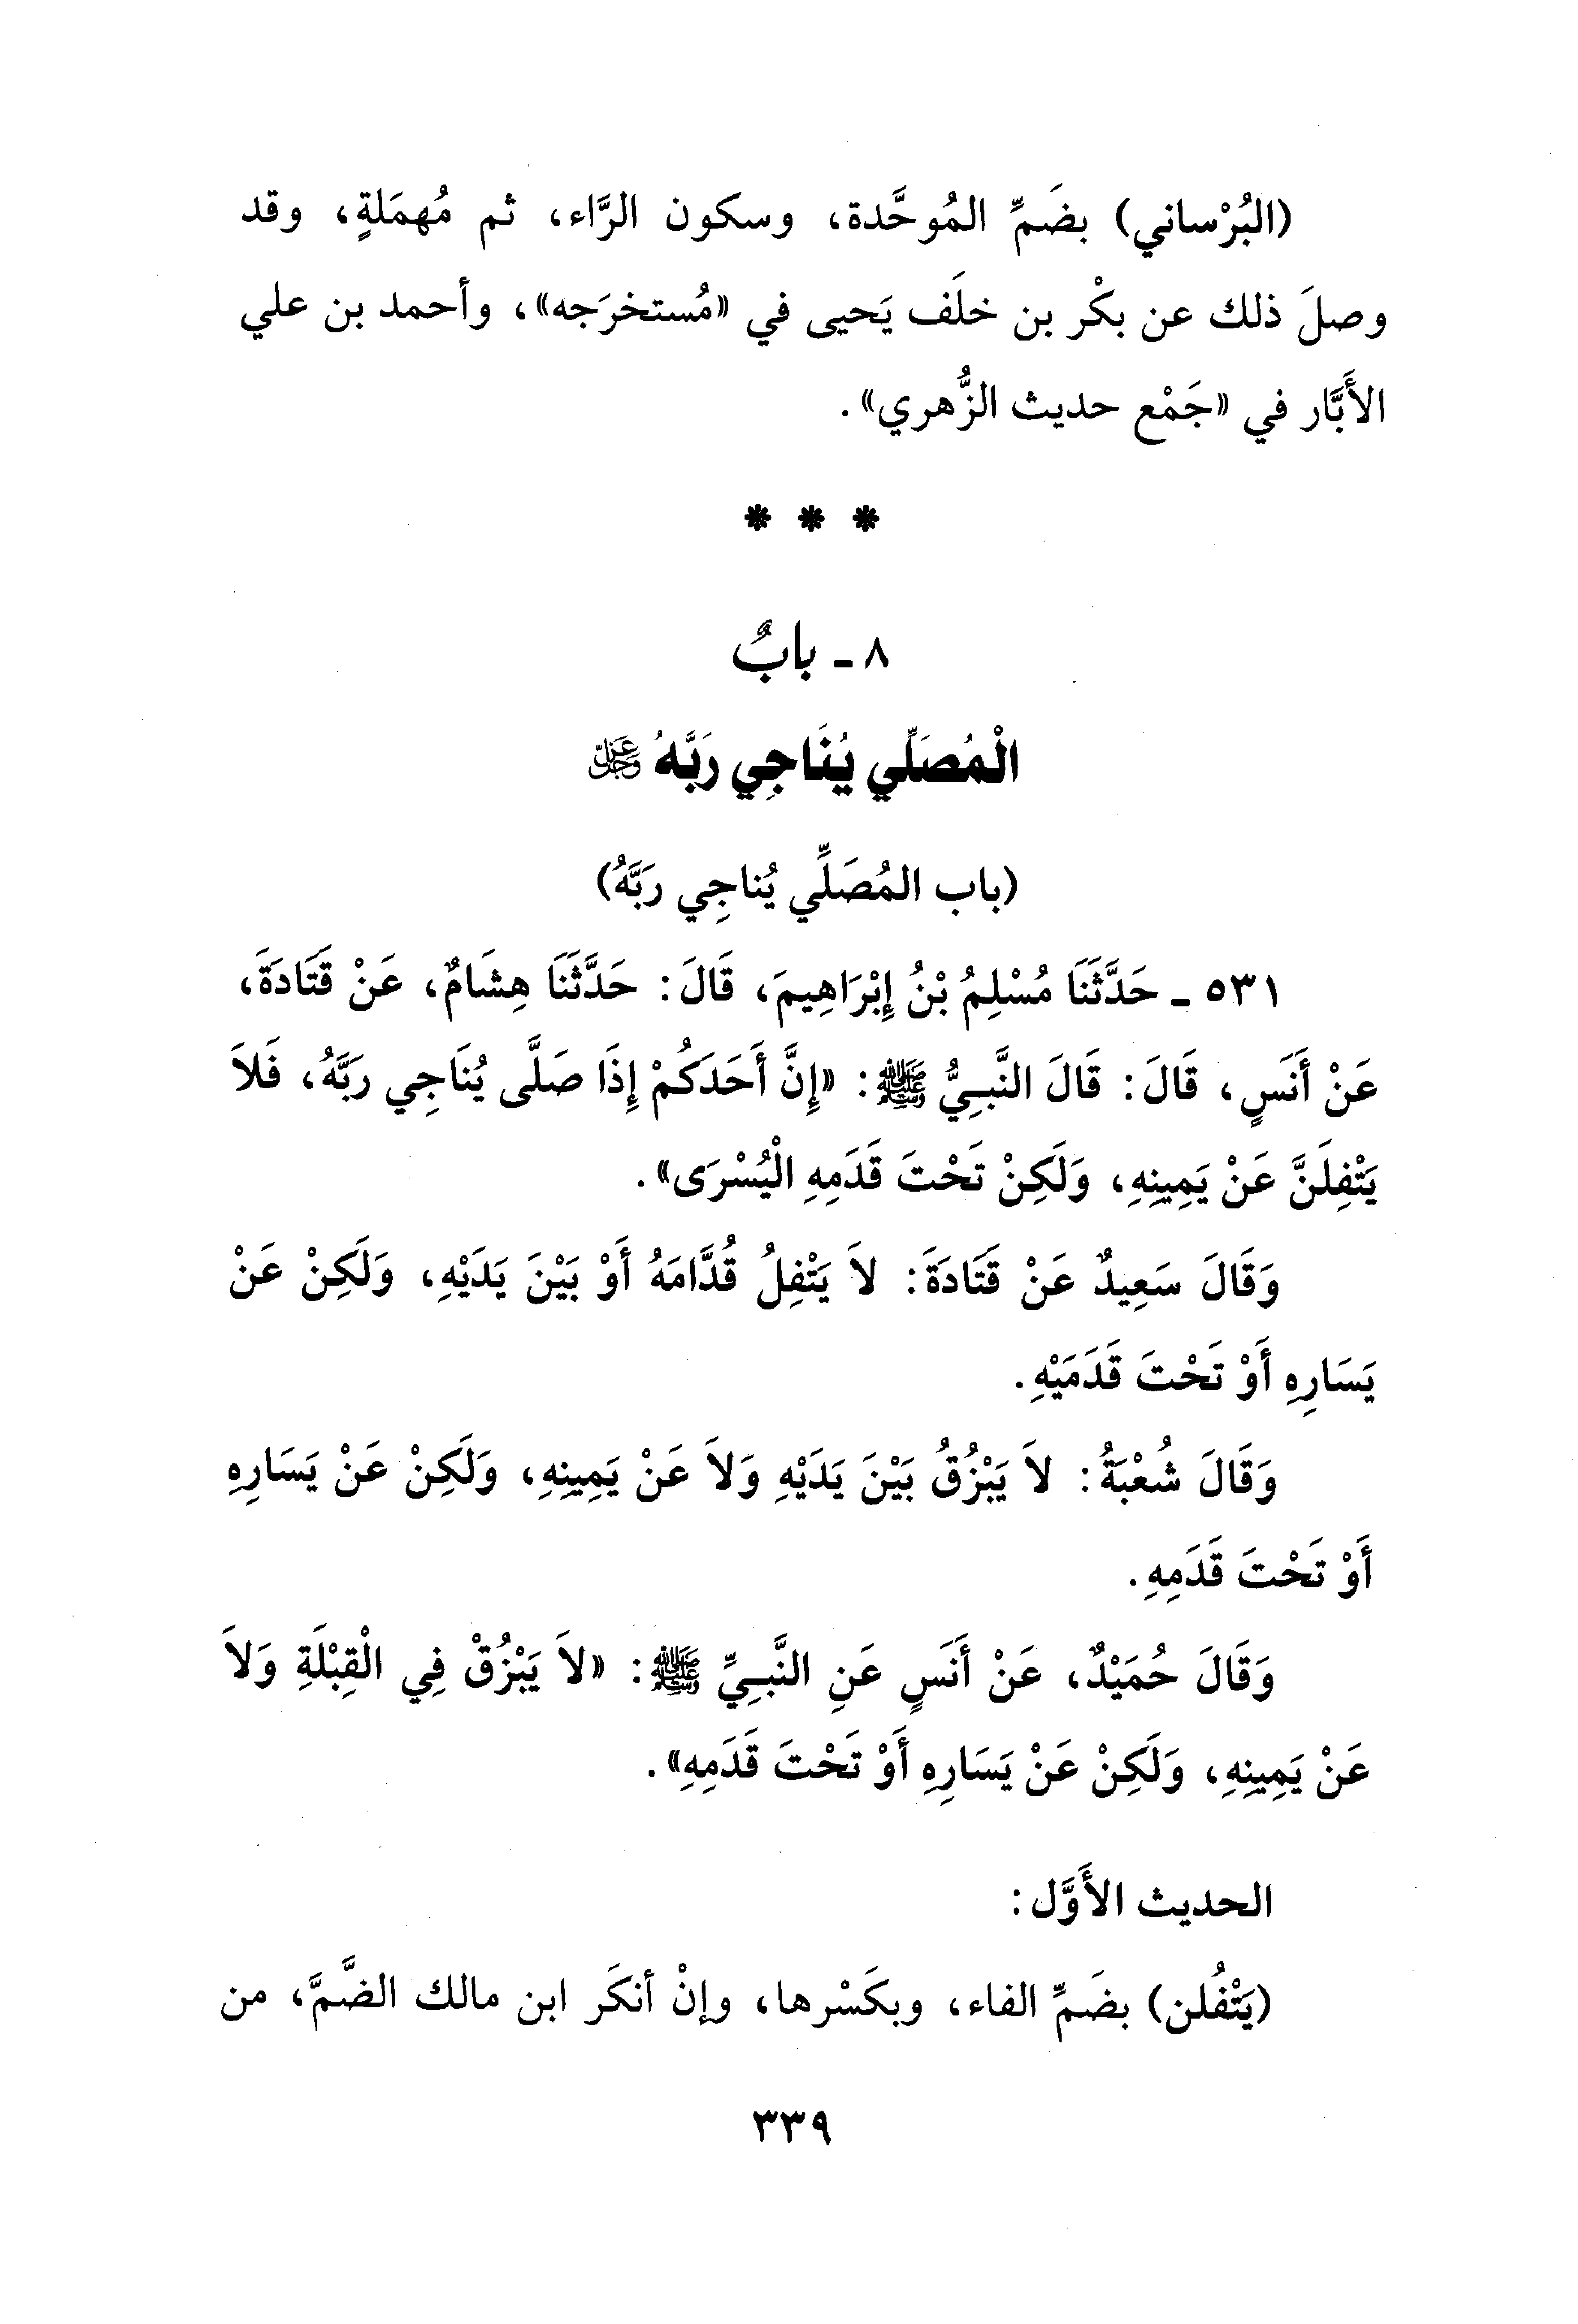 (البُرْساني) بضَمِّ المُوحَّدة، وسكون الرَّاء، ثم مُهمَلةٍ، وقد
وصلَ ذلك عن بكْر بن خلَف يَحيى في «مُستخرَجه»، وأحمد بن علي
الأَبَّار في «جَمْع حديث الزُّهري».
* * *
٨ - بابٌ
الْمُصَلِّي يُنَاجِي رَبَّهُ عَزَّ وَجَلَّ
(باب المُصَلِّي يُناجِي ربَّهُ)
٥٣١ - حَدَّثَنَا مُسْلِمُ بْنُ إِبْرَاهِيمَ، قَالَ: حَدَّثَنَا هِشَامٌ، عَنْ قَتَادَةَ،
عَنْ أَنَسٍ، قَالَ: قَالَ النَّبِيُّ ﷺ: «إِنَّ أَحَدَكُمْ إِذَا صَلَّى يُنَاجِي رَبَّهُ، فَلاَ
يَتْفِلَنَّ عَنْ يَمِينِهِ، وَلَكِنْ تَحْتَ قَدَمِهِ الْيُسْرَى».
وَقَالَ سَعِيدٌ عَنْ قَتَادَةَ: لاَ يَتْفِلُ قُدَّامَهُ أَوْ بَيْنَ يَدَيْهِ، وَلَكِنْ عَنْ
يَسَارِهِ أَوْ تَحْتَ قَدَمَيْهِ.
وَقَالَ شُعْبَةُ: لاَ يَبْزُقُ بَيْنَ يَدَيْهِ وَلاَ عَنْ يَمِينِهِ، وَلَكِنْ عَنْ يَسَارِهِ
أَوْ تَحْتَ قَدَمِهِ.
وَقَالَ حُمَيْدٌ، عَنْ أَنَسٍ عَنِ النَّبِيِّ ﷺ: «لاَ يَبْزُقْ فِي الْقِبْلَةِ وَلاَ
عَنْ يَمِينِهِ، وَلَكِنْ عَنْ يَسَارِهِ أَوْ تَحْتَ قَدَمِهِ».
الحديث الأَوَّل:
(يَتْفُلن) بضَمِّ الفاء، وبكَسْرها، وإنْ أنكَر ابن مالك الضَّمَّ، من
٣٣٩